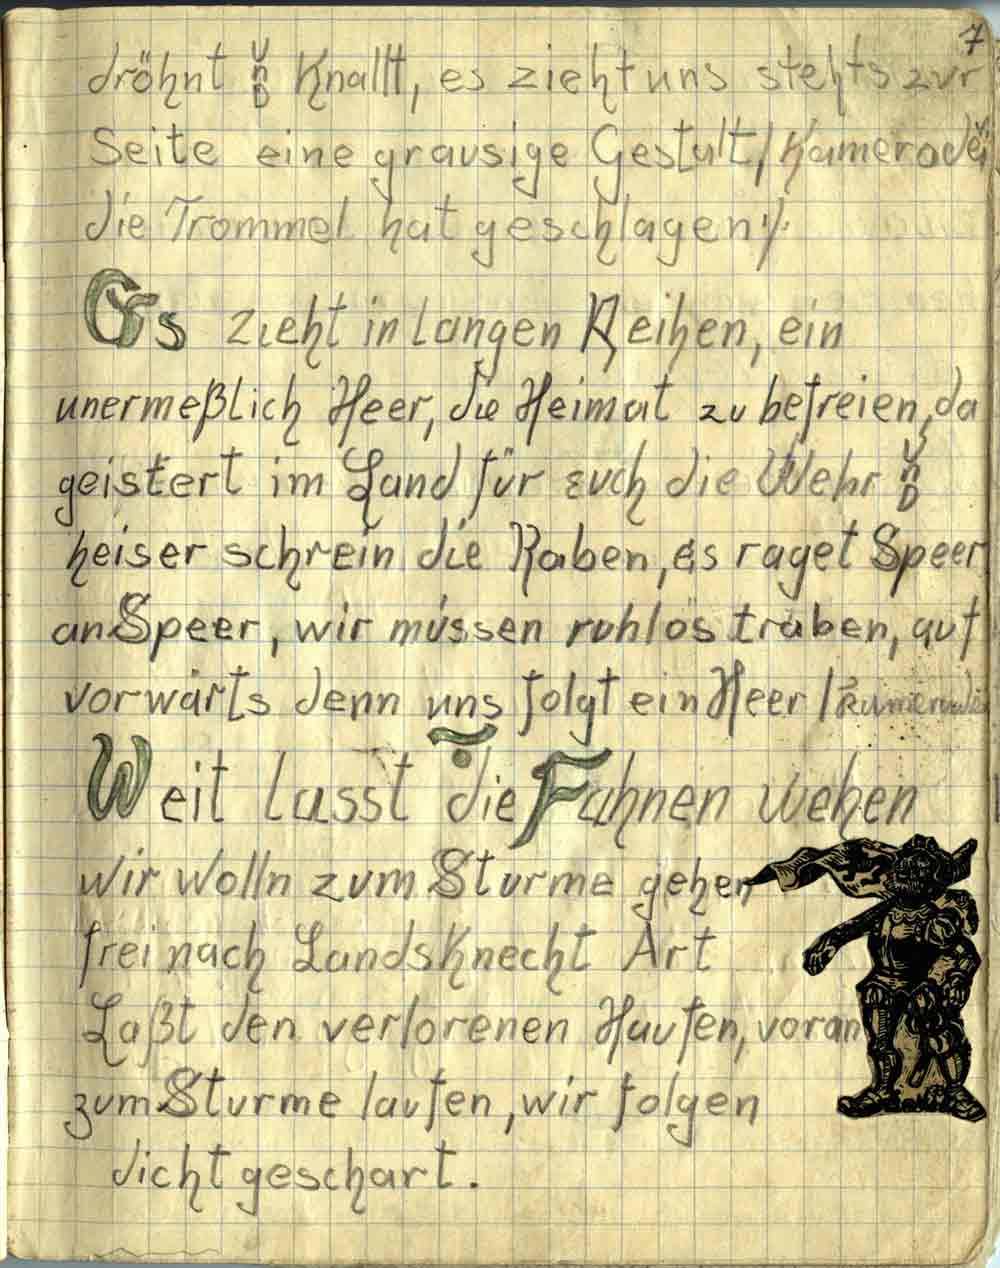 7
dröhnt und Knallt, es zieht uns stehts zur
Seite eine grausige Gestalt / Kameraden
die Trommel hat geschlagen ./.
Es zieht in langen Reihen, ein
unermeßlich Heer, die Heimat zu befreien, da
geistert im Land für euch die Wehr und
heiser schrein die Raben, es raget Speer
an Speer, wir müssen ruhlos traben, auf
vorwärts denn uns folgt ein Heer /
Weit lasst die Fahnen wehen
wir wolln zum Sturme gehen
frei nach Landsknecht Art
Laßt den verlorenen Haufen, voran
zum Sturme laufen, wir folgen
dicht geschart.